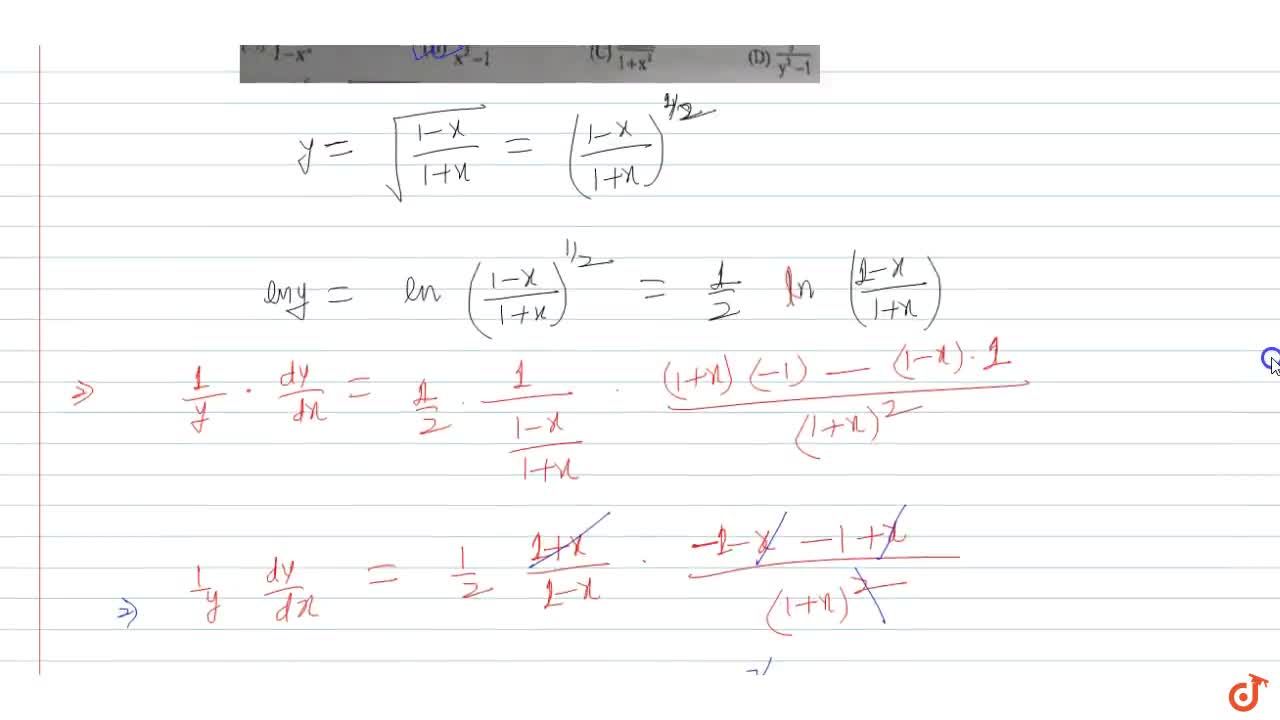 1-x² (B) x²-1 (C) 1+x² (D) y/y²-1
y = √((1-x)/(1+x)) = ((1-x)/(1+x))^1/2
lny = ln ((1-x)/(1+x))^1/2 = 1/2 ln ((1-x)/(1+x))
⇒ 1/y · dy/dx = 1/2 · 1/((1-x)/(1+x)) · ((1+x)(-1) - (1-x)·1)/(1+x)²
⇒ 1/y dy/dx = 1/2 (1+x)/(1-x) · (-1-x-1+x)/(1+x)²